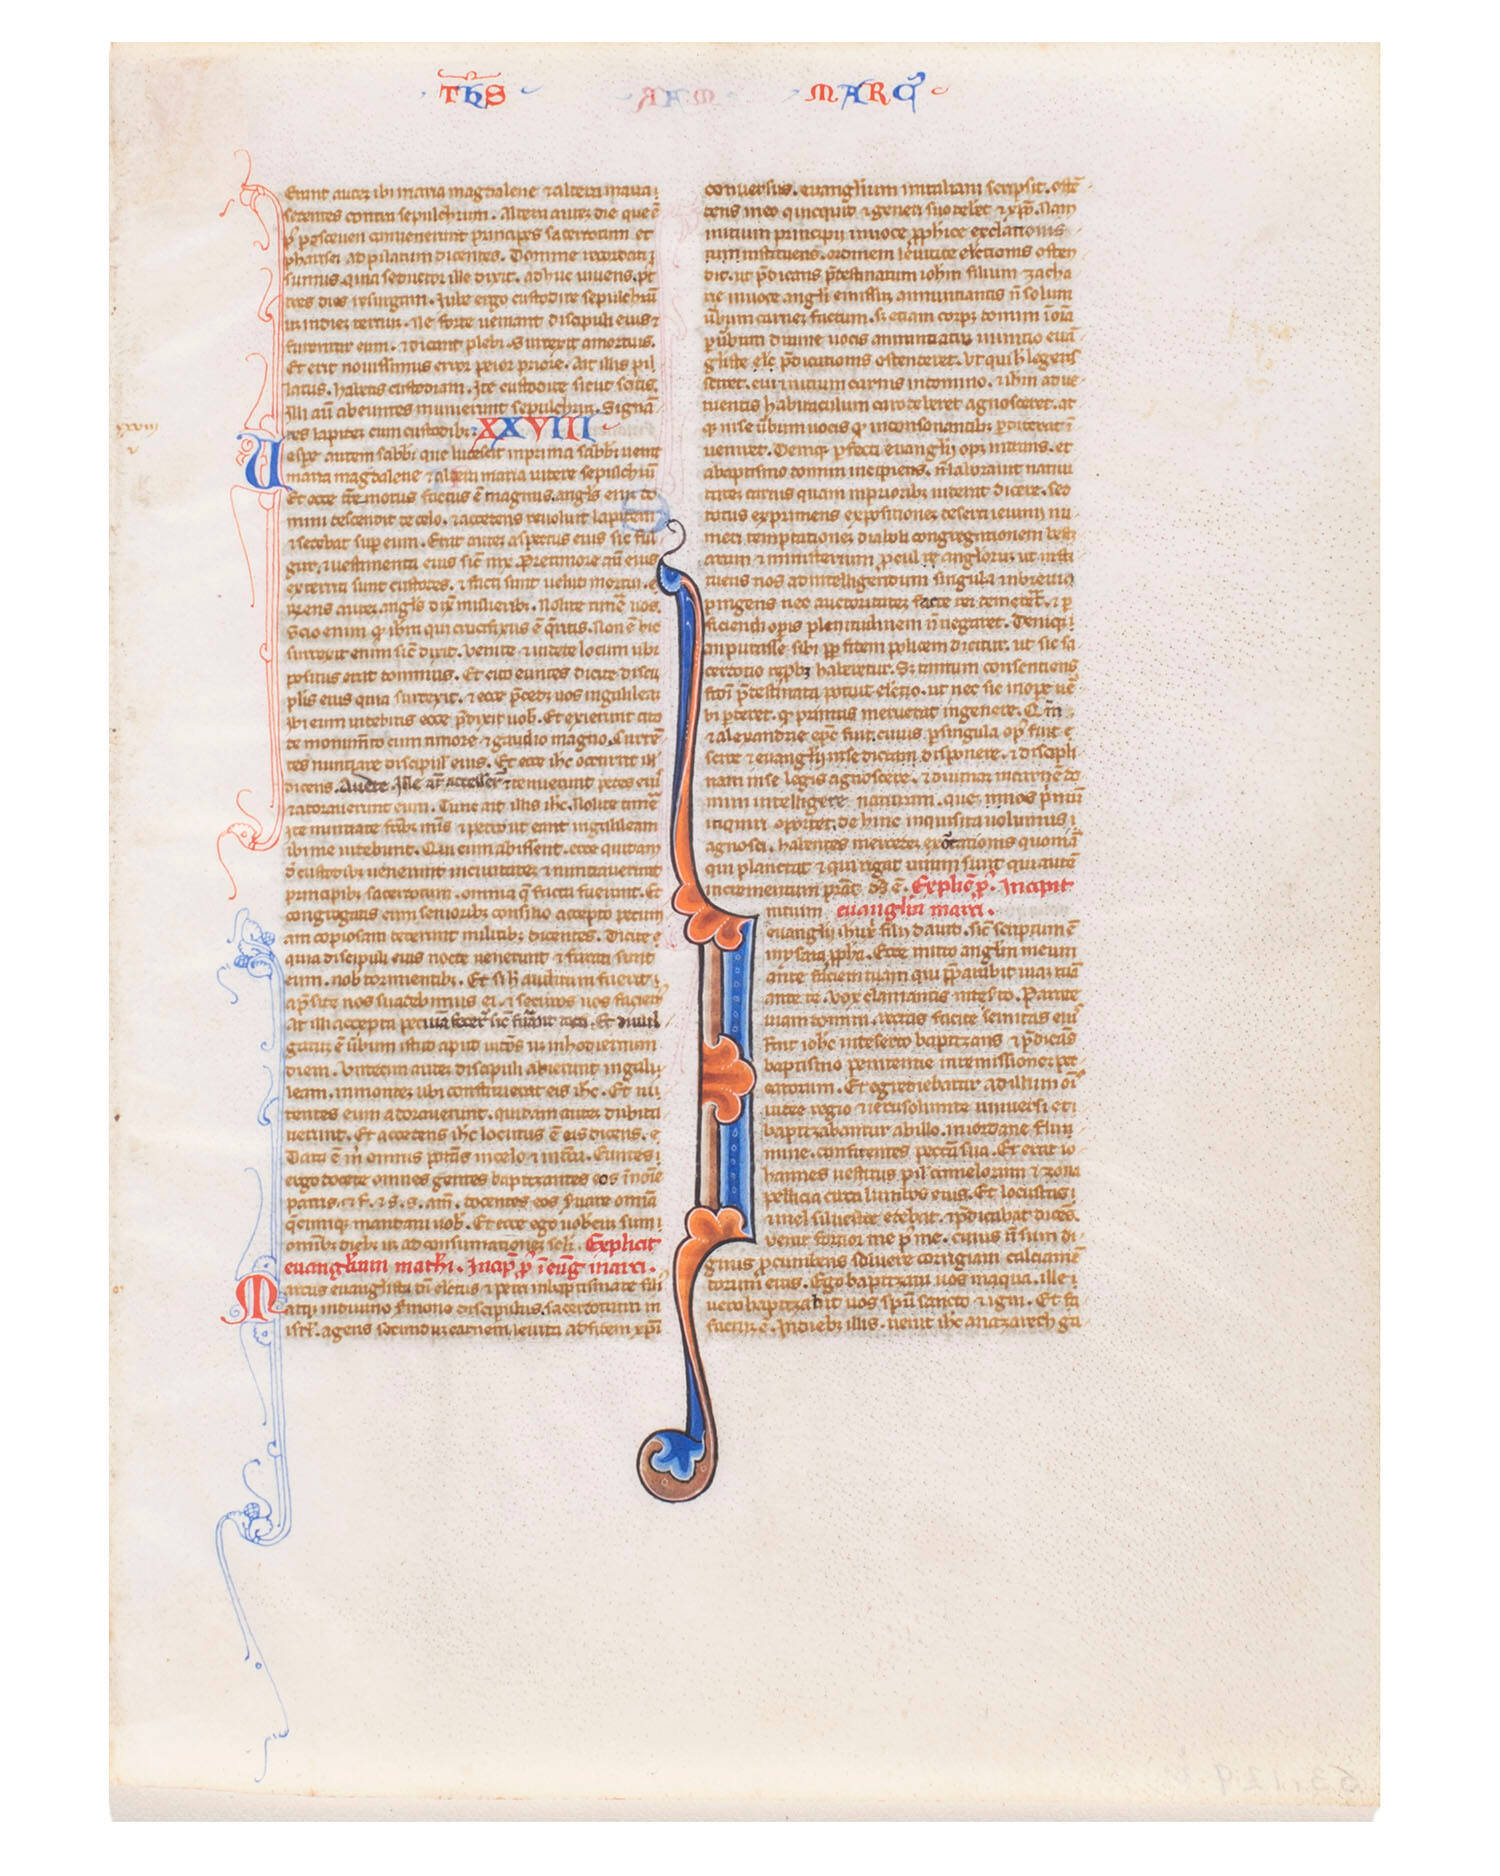 THS MARQ
Erant autē ibi maria magdalene ⁊ altera maria
sedentes contra sepulchrum. Altera autē die que ē
p̄ parasceuen conuenerunt principes sacerdotum et
pharisei ad pilatum dicentes. Domine recordati
sumus. quia seductor ille dixit. adhuc uiuens. p̄t
tres dies resurgam. Iube ergo custodire sepulchrū
in diem tertiū. Ne forte ueniant discipuli eius ⁊
furentur eum. ⁊ dicant plebi. Surrexit a mortuis.
Et erit nouissimus error peior priore. Ait illis pi
latus. habetis custodiam. Ite custodite sicut scitis.
Illi aū abeuntes munierunt sepulchrū. Signā
tes lapidē cum custodibꝫ. XXVIII
Uespe autem sabbi que lucescit in prima sabbi uenit
maria magdalene ⁊ altera maria uidere sepulchrū
Et ecce t̄re motus factus ē magnus. angl̄s enī do
mini descendit de celo. ⁊ accedens reuoluit lapidem
⁊ sedebat sup eum. Erat autē aspectus eius sic ful
gur. ⁊ uestimenta eius sic̄ nix. Pre timore aū eius
exterriti sunt custodes. ⁊ facti sunt uelut mortui.
dens autē angl̄s dix̄ mulieribꝫ. Nolite timē uos.
Scio enim q̄ ih̄m qui crucifixus ē q̄ritis. Non ē hic
surrexit enim sic̄ dixit. Venite ⁊ uidete locum ubi
positus erat dominus. Et cito euntes dicite discı
plis eius quia surrexit. ⁊ ecce p̄cedet uos in galileā
ibi eum uidebitis ecce p̄dixit uob̄. Et exierunt cito
de monum̄to cum timore ⁊ gaudio magno. curren
tes nuntiare discipul̄ eius. Et ecce ih̄c occurrit ill̄
dicens. Auete. Ille aū accesser̄ ⁊ tenuerunt pedes eiꝰ
⁊ adorauerunt eum. Tunc ait illis ih̄c. Nolite timē
ite nuntiate fr̄ibꝫ m̄is ⁊ preco ut eant in galileam
ibi me uidebunt. Que cum abissent. ecce quidam
d̄ custodibꝫ uenerunt in ciuitatē ⁊ nuntiauerunt
principibꝫ sacerdotum. omnia q̄ facta fuerunt. Et
congregatis cum senioribꝫ consilio accepto pecuni
am copiosam dederunt militibꝫ dicentes. Dicite
quia discipuli eius nocte uenerunt ⁊ furati sunt
eum. nob̄ dormientibꝫ. Et si h̄ auditum fuerit
a p̄side nos suadebimus ei. ⁊ securos uos faciem̄
At illi accepta pecunia fecer̄ sic̄ erant docti. Et diuul
gatū ē ūbum istud apud iudeos usꝫ in hodiernum
diem. Undecim autē discipuli abierunt in gali
leam. in montē ubi constituerat eis ih̄c. Et ui
dentes eum adorauerunt. quidam autē dubita
uerunt. Et accedens ih̄c locutus ē eis dicens.
Data ē m̄ omnis potās in celo ⁊ in t̄ra. Euntes
ergo docete omnes gentes baptizantes eos ī noīe
patris. ⁊ f. ⁊ s. s. am̄. docentes eos s̄uare omīa
q̄cumqꝫ mandaui uob̄. Et ecce ego uobcū sum
omībꝫ diebꝫ usꝫ ad consumationē scl̄i. Explicit
euangl̄ium math̄i. Incip̄ p̄ ī eūg marci.
Marcus euanglista dī electus ⁊ petri in baptismate fili
atqꝫ in diuino s̄mone discipulus. sacerdotium in
isrl̄. agens secundū carnem leuita ad fidem xp̄i
conuersus. euanglium in italiam scripsit. ostē
dens in eo quicquid ⁊ generi suo deberet ⁊ xp̄o. Nam
initium principii in uoce p̄phice exclationis
instituens. ordinem leuitice electionis osten
dit. ut p̄dicans p̄destinatum ioh̄m filium zacha
rie in uoce angl̄i emissū annuntiantis n̄ solum
ūbum carnem factum. sꝫ etiam corpꝫ domini ī oīa
p ūbum diuine uocis animatū initio euā
gl̄iste p̄dicationis ostenderet. Ut qui h̄ legens
sciret. cui initium carnis in domino. ⁊ ih̄u adue
nientis habitaculum caro deberet agnosceret. at
q̄ in se ūbum uocis q̄ in consonantibꝫ pdiderat ī
ueniret. Deniqꝫ pfecti euanglii opꝫ intrans. et
a baptismo domini incipiens. n̄ laborauit natiui
tatē carnis quam in prioribꝫ uicerat dicere. sed
totus exprimens expositionē deserti ieiunii nu
meri temptationē diaboli congregationem besti
arum ⁊ ministerium p̄culit angelorū. ut insti
tuens nos ad intelligendum singula in breui
pingens nec auctoritatē facte rei demeret. ⁊ p
ficiendi opis plenitudinem n̄ negaret. Deniqꝫ
amputasse sibi p fidem pollicem dicitur. ut sic sa
cerdotio repbꝫ haberetur. Sꝫ tantum consentiens
fidei p̄destinata potuit electio. ut nec sic in ope ūb
bi pderet. q̄ primus meruerat in genere. Nam
⁊ alexandrie ep̄c fuit. cuius p singula opꝰ fuit
scire ⁊ euanglii in se dictam disponere. ⁊ discipli
nam in se legis agnoscere. ⁊ diuinā in carne do
mini intelligere naturam. que in nos p̄mū
inquiri oportet. de hinc inquisita uolumus
agnosci. habentes mercedē exortationis quoniā
qui plantat ⁊ qui rigat unum sunt. qui autē
incrementum p̄stat ds ē. Explic̄ p̄. Incipit
Initium euangliū marci.
euanglii ih̄u xp̄ filii dauid. sic̄ scriptum ē
in ysaia p̄pha. Ecce mitto anglm̄ meum
ante faciem tuam qui p̄parabit uiā tuā
ante te. Vox clamantis in deserto. Parate
uiam domini. rectas facite semitas eiꝰ
Fuit ioh̄c in deserto baptizans ⁊ p̄dicās
baptismo penitentie in remissionē pec
catorum. Et egrediebatur ad illum oīs
iudee regio ⁊ ierusolimite uniuersi ⁊
baptizabantur ab illo. in iordane flum
mine. confitentes peccata sua. Et erat io
hannes uestitus pil̄ camelorum ⁊ zona
pellicia circa lumbos eius. Et locustas
⁊ mel siluestre edebat. ⁊ p̄dicabat dicēs.
uenit fortior me p̄ me. cuius n̄ sum di
gnus p̄cumbens soluere corrigiam calciamē
torum eius. Ego baptizaui uos in aqua. ille
uero baptizabit uos spū sancto ⁊ igni. Et fa
ctum ē. In diebꝫ illis. uenit ih̄c a nazareth ga